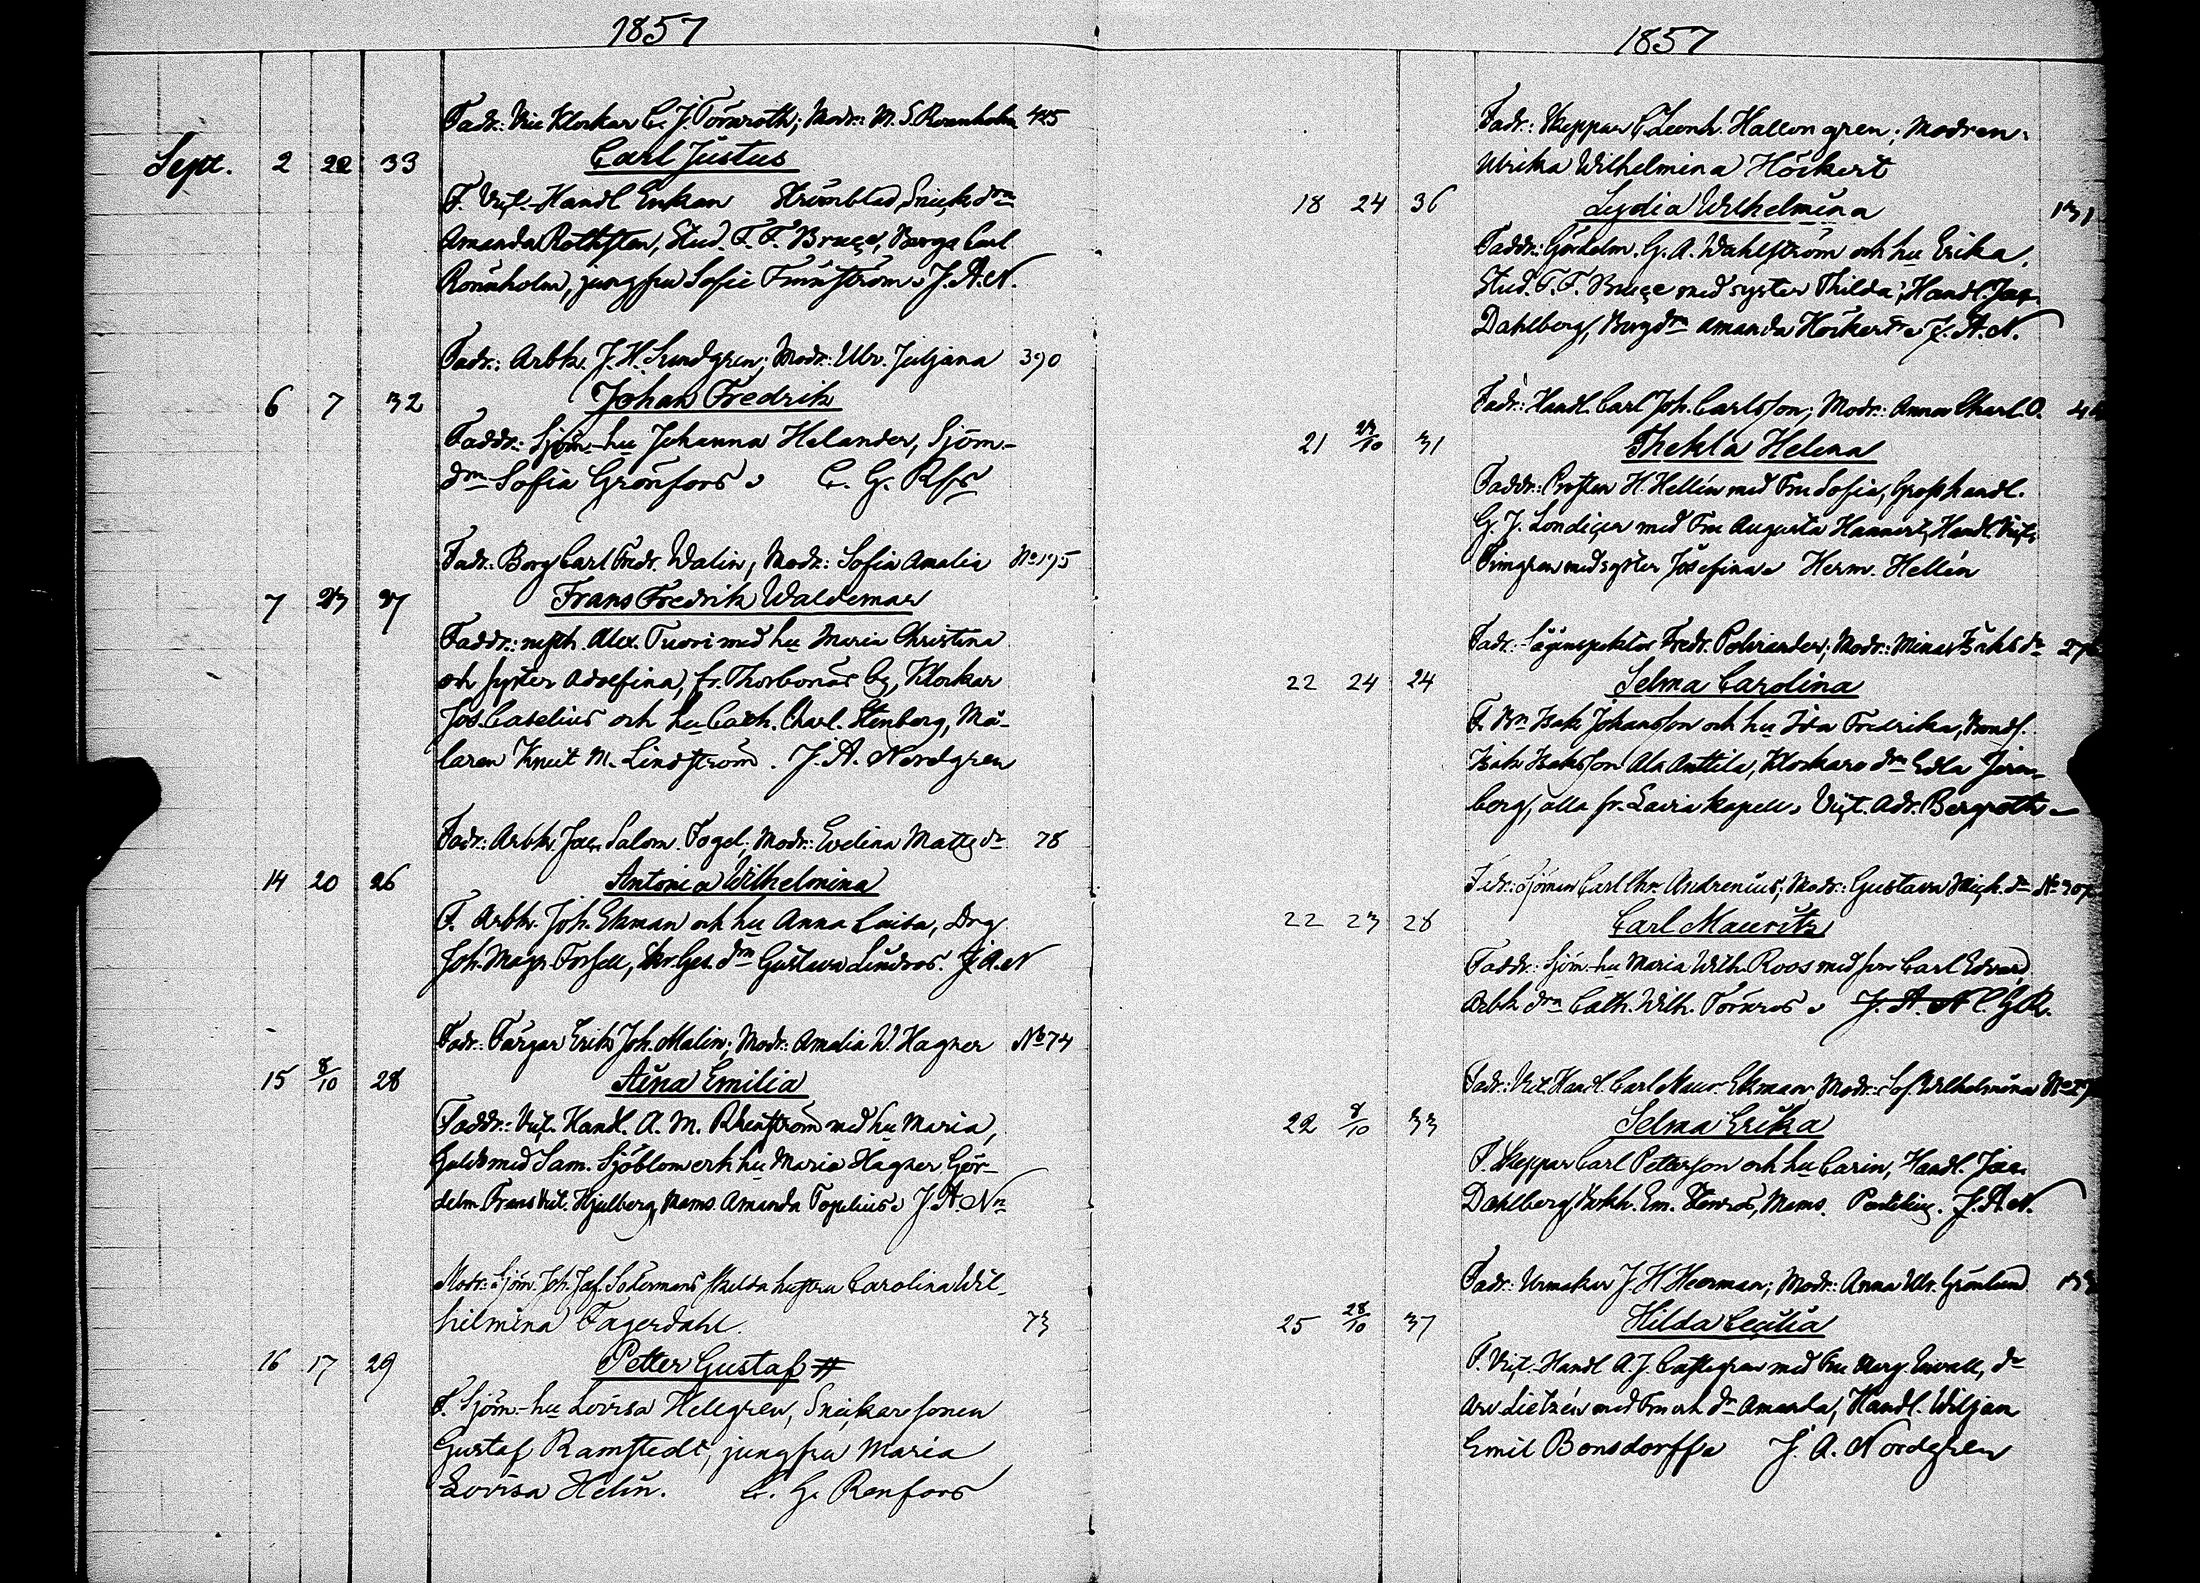 1857
Fadr.: Vice Klockar C. J. Törnroth; Modr.: M. S. Rönnholm 425
Sept. 2 22 33 Carl Justus
F. Vict. Handl Enkan Strömblad, Snick. drn
Amanda Rothsten, Stud. F. F. Bruce, Borgs Carl
Rönnholm, jungfru Sofie Finnström J. A. N.
Fadr.: Arbk. J. H. Sundgren; Modr.: Ulr. Juljana 390
6 7 32 Johan Fredrik
Faddr.: Sjöm-hu Johanna Helander, Sjöm-
drn Sofia Grönfors C. G. Rfs
Fadr.: Borg Carl Fredr. Walin, Modr.: Sofia Amalia No 195
7 27 37 Frans Fredrik Waldemar
Faddr.: Alex. Tuori med hu Maria Christina
och syster Adolfina, fr. Thorbonäs By, Klockar
Jos. Cavelius och hu Cath. Charl. Stenberg, Må-
laren Knut M. Lindström. J. A. Nordgren
Fadr.: Arbk. Jac. Salom. Fogel; Modr.: Evelina Mattsdr 78
14 20 26 Antonia Wilhelmina
F. Arbk. Joh. Ekman och hu Anna Caisa, Drg
Joh. Magn. Forsell, drn Gustava Lindros. J. A. N
Fadr.: Färgar Erik Joh. Malin; Modr.: Amalia W. Hagner No 74
15 8/10 28 Aina Emilia
Faddr.: Vict. Handl. A. M. Rhenström med hu Maria,
Guldsmed Sam. Sjöblom och hu Maria Hagner, Gör-
delm Frans Vict. Hjulberg, Mams. Amanda Topelius J. A. Nn
Modr.: Sjöm. Joh. Jaf. Södermans skilda hustru Carolina Wil-
helmina Fagerdahl. 73
16 17 29 Petter Gustaf #
F. Sjöm-hu Lovisa Hellgren, Snickaresonen
Gustaf Ramstedt, jungfru Maria
Lovisa Helin. C. G. Renfors
1857
Fadr.: Skeppar C Leonh. Hallongren; Modren:
Ulrika Wilhelmina Höckert
18 24 36 Lydia Wilhelmina 131
Faddr.: Gördelm. G. A. Wahlström och hu Erika,
Stud. F. F. Bruce med syster Thilda, Handl. Jac.
Dahlberg, Borgdrn Amanda Höckert J. A. N.
Fadr.: Handl. Carl Joh. Carlsson; Modr.: Anna Charl. O.
21 27/10 31 Thekla Helena
Faddr.: Prosten H. Hellén med Fru Sofia, Grosshandl.
G. J. Londicer med Fru Augusta Hannert, Handl. Vict.
Timgren med syster Josefina Herm. Hellén
Fadr.: Såginspektor Fredr. Polviander; Modr.: Mina Isaksdr
22 24 24 Selma Carolina
F. Bn Isak Johansson och hu Ida Fredrika, Bonds.
Isak Isaksson Ala Anttila, Klockare drn Edla
berg, alla fr. Lavia kapell. Vict. Adr. Bergroth
Fadr.: Sjöman Carl Chr. Andrenius; Modr.: Gustava Mich. dr
22 23 28 Carl Mauritz
Faddr.: Sjöm-hu Maria Wilh. Roos med son Carl Edvard,
Arbk drn Cath. Wilh. Törnros J. A. N C. G. R.
Fadr.: Vict. Handl. Carl Maur. Ekman; Modr.: Sof. Wilhelmina
22 8/10 33 Selma Erika
F. Skeppar Carl Petterson och hu Carin, Handl. Jac.
Dahlberg, Bokh. Em. Stenros, Mams. J. A. N.
Fadr.: Urmakar J. H. Heerman; Modr.: Anna Ulr. Grönlund
25 28/10 37 Hilda Cecilia
F. Vict. Handl A. J. Castegren med Fru Marg. dr
med Fru och dr Amanda, Handl. Wiljam
Emil Bonsdorff J. A. Nordgren